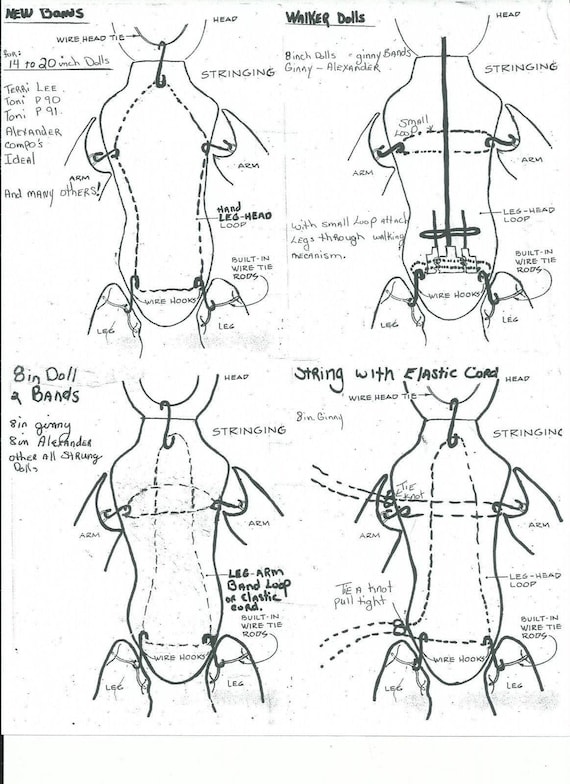 NEW BANDS
HEAD
WIRE HEAD TIE
FOR:
14 to 20 inch Dolls
STRINGING
TERRI LEE.
Toni P90
Toni P.91.
Alexander
compo's
Ideal
ARM
ARM
And MANY Others!
HAND
LEG-HEAD
LOOP
BUILT-IN
WIRE TIE
RODS
WIRE HOOKS
LEG
LEG
WALKER Dolls
HEAD
8inch Dolls = ginny BANDS
Ginny - Alexander
STRINGING
Small
Loop.
ARM
ARM
LEG-HEAD
LOOP
with Small Loop attach
Legs through walking
mecanism.
BUILT-IN
WIRE TIE
RODS
WIRE HOOKS
LEG
LEG
8in Doll
2 BANDS
HEAD
8in ginny
8in Alexander
other All STRUNG
Dolls
STRINGING
ARM
ARM
LEG-ARM
BAND LOOP
or elastic
cord.
BUILT-IN
WIRE TIE
RODS
WIRE HOOKS
LEG
LEG
String with Elastic Cord
HEAD
WIRE HEAD TIE
8in Ginny
STRINGING
TIE
KNOT
ARM
ARM
LEG-HEAD
LOOP
TIE A knot
pull tight
BUILT-IN
WIRE TIE
RODS
WIRE HOOKS
LEG
LEG